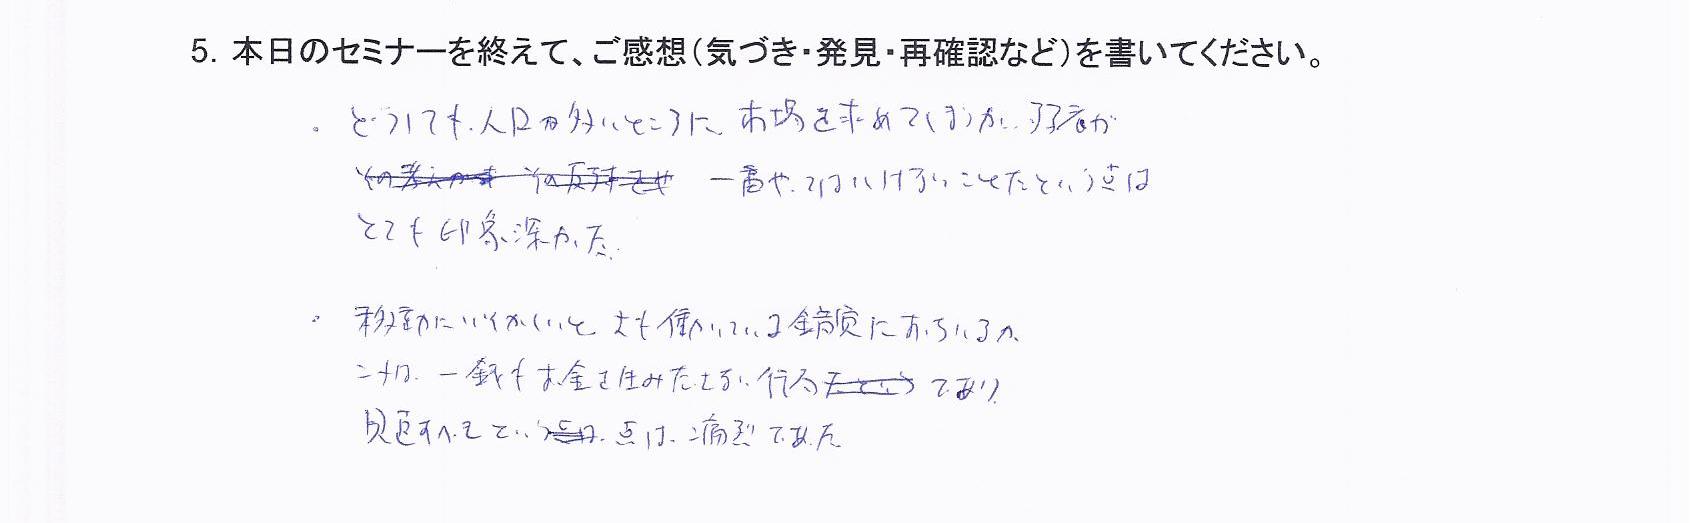 5. 本日のセミナーを終えて、ご感想(気づき・発見・再確認など)を書いてください。
・どうしても、人口の多いところに市場を求めてしまうが、弱者が
一番やってはいけないことだという点は
とても印象深かった。
・移動にいそがしいと さも働いている錯覚におちいるが、
これは、一銭もお金を生みださない行為であり
見直すべきという点は、痛烈であった